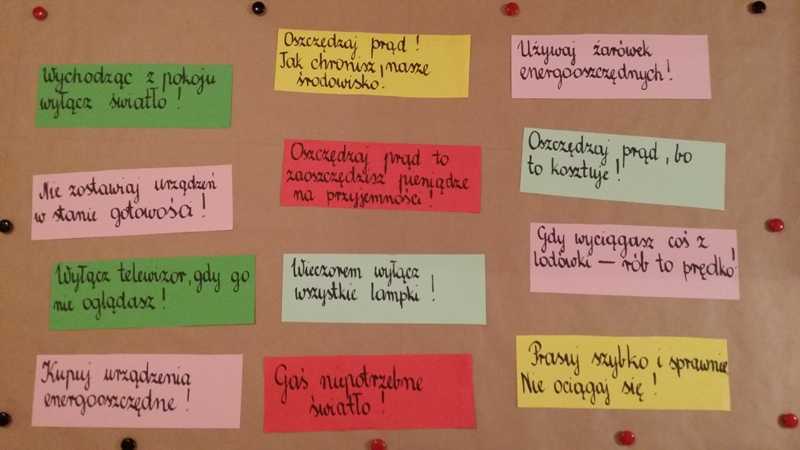 Wychodząc z pokoju
wyłącz światło !
Oszczędzaj prąd !
Tak chronisz nasze
środowisko.
Używaj żarówek
energooszczędnych!
Nie zostawiaj urządzeń
w stanie gotowości !
Oszczędzaj prąd to
zaoszczędzisz pieniądze
na przyjemności !
Oszczędzaj prąd, bo
to kosztuje !
Wyłącz telewizor, gdy go
nie oglądasz !
Wieczorem wyłącz
wszystkie lampki !
Gdy wyciągasz coś z
lodówki – rób to prędko!
Kupuj urządzenia
energooszczędne !
Gaś niepotrzebne
światło !
Prasuj szybko i sprawnie
Nie ociągaj się !